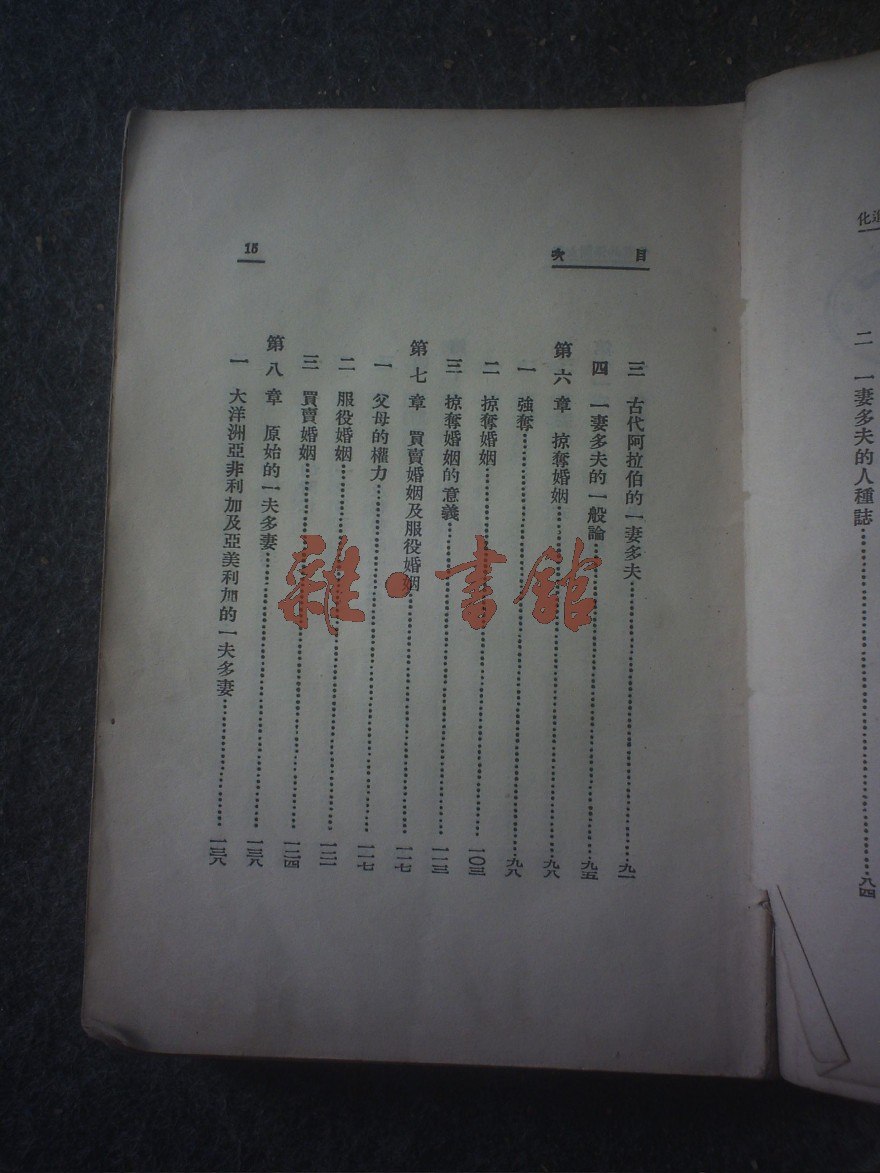 二 一妻多夫的人種誌……八四
目次
15
三 古代阿拉伯的一妻多夫……九一
四 一妻多夫的一般論……九五
第六章 掠奪婚姻……九八
一 強奪……九八
二 掠奪婚姻……一〇三
三 掠奪婚姻的意義……一一三
第七章 買賣婚姻及服役婚姻……一一七
一 父母的權力……一一七
二 服役婚姻……一二一
三 買賣婚姻……一二四
第八章 原始的一夫多妻……一三八
一 大洋洲亞非利加及亞美利加的一夫多妻……一三八
雜·書館